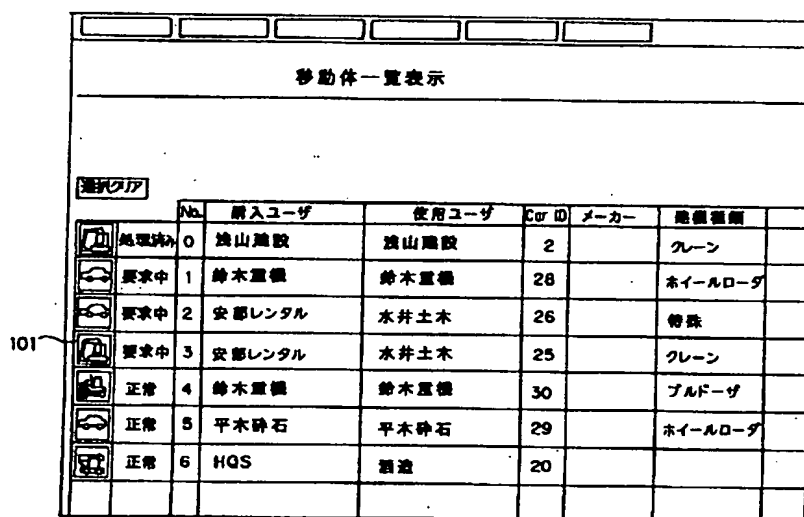 移動体一覧表示
選択クリア
No. 購入ユーザ 使用ユーザ Car ID メーカー 建機種類
処理済み 0 浅山建設 浅山建設 2 クレーン
要求中 1 鈴木重機 鈴木重機 28 ホイールローダ
要求中 2 安部レンタル 水井土木 26 特殊
101 要求中 3 安部レンタル 水井土木 25 クレーン
正常 4 鈴木重機 鈴木重機 30 ブルドーザ
正常 5 平木砕石 平木砕石 29 ホイールローダ
正常 6 HQS 酒造 20